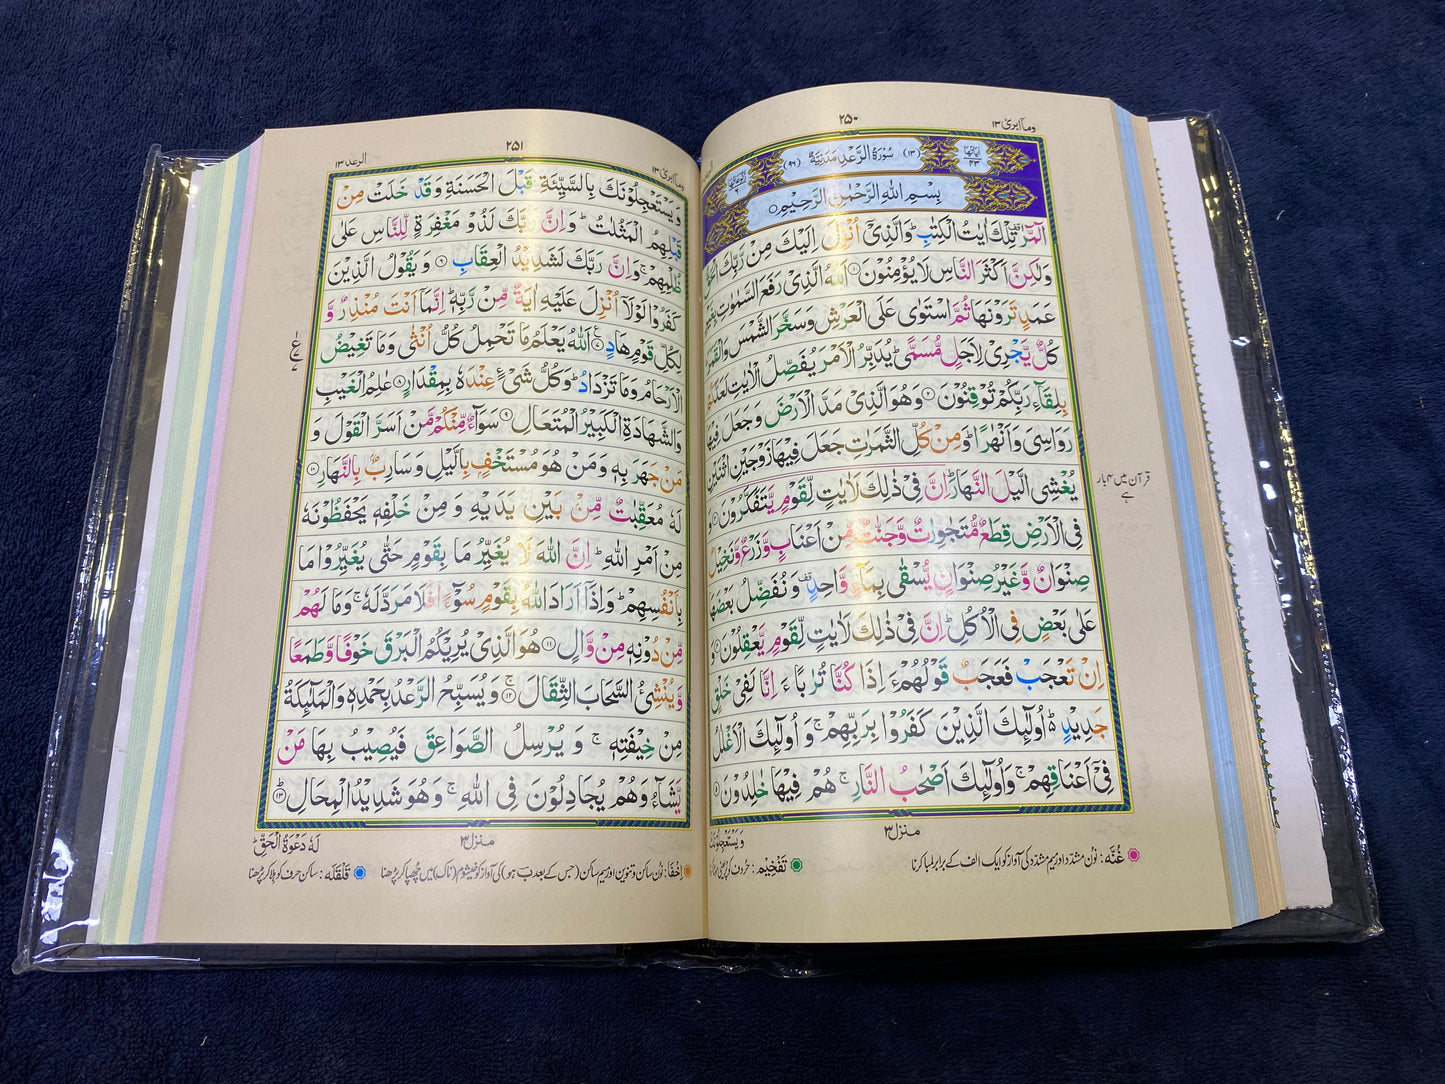 ٢٥٠
ومآ ابرئ ١٣
اٰیاتها ٤٣
(١٣) سُوْرَةُ الرَّعْدِ مَدَنِيَّةٌ (٩٦)
رکوعاتها ٦
بِسْمِ اللّٰهِ الرَّحْمٰنِ الرَّحِيْمِ
الٓمّٓرٰ تِلْكَ اٰيٰتُ الْكِتٰبِ ؕ وَالَّذِيْۤ اُنْزِلَ اِلَيْكَ مِنْ رَّبِّكَ الْحَقُّ
وَلٰكِنَّ اَكْثَرَ النَّاسِ لَا يُؤْمِنُوْنَ ۝١ اَللّٰهُ الَّذِيْ رَفَعَ السَّمٰوٰتِ بِغَيْرِ
عَمَدٍ تَرَوْنَهَا ثُمَّ اسْتَوٰى عَلَى الْعَرْشِ وَسَخَّرَ الشَّمْسَ وَالْقَمَرَ
كُلٌّ يَّجْرِيْ لِاَجَلٍ مُّسَمًّى ؕ يُدَبِّرُ الْاَمْرَ يُفَصِّلُ الْاٰيٰتِ لَعَلَّكُمْ
بِلِقَآءِ رَبِّكُمْ تُوْقِنُوْنَ ۝٢ وَهُوَ الَّذِيْ مَدَّ الْاَرْضَ وَجَعَلَ فِيْهَا
رَوَاسِيَ وَاَنْهٰرًا ؕ وَمِنْ كُلِّ الثَّمَرٰتِ جَعَلَ فِيْهَا زَوْجَيْنِ اثْنَيْنِ
يُغْشِي الَّيْلَ النَّهَارَ ؕ اِنَّ فِيْ ذٰلِكَ لَاٰيٰتٍ لِّقَوْمٍ يَّتَفَكَّرُوْنَ ۝٣ وَ
فِي الْاَرْضِ قِطَعٌ مُّتَجٰوِرٰتٌ وَّجَنّٰتٌ مِّنْ اَعْنَابٍ وَّزَرْعٌ وَّنَخِيْلٌ
صِنْوَانٌ وَّغَيْرُ صِنْوَانٍ يُّسْقٰى بِمَآءٍ وَّاحِدٍ ۫ وَنُفَضِّلُ بَعْضَهَا
عَلٰى بَعْضٍ فِي الْاُكُلِ ؕ اِنَّ فِيْ ذٰلِكَ لَاٰيٰتٍ لِّقَوْمٍ يَّعْقِلُوْنَ ۝٤ وَ
اِنْ تَعْجَبْ فَعَجَبٌ قَوْلُهُمْ ءَاِذَا كُنَّا تُرٰبًا ءَاِنَّا لَفِيْ خَلْقٍ
جَدِيْدٍ ؕ اُولٰٓئِكَ الَّذِيْنَ كَفَرُوْا بِرَبِّهِمْ ۚ وَاُولٰٓئِكَ الْاَغْلٰلُ
فِيْۤ اَعْنَاقِهِمْ ۚ وَاُولٰٓئِكَ اَصْحٰبُ النَّارِ ۚ هُمْ فِيْهَا خٰلِدُوْنَ ۝٥
قرآن میں ۴ بار
ہے
منزل ٣
وَيَسْتَعْجِلُوْنَكَ
غُنَّه: نون مشدّد اور میم مشدّد کی آواز کو ایک الف کے برابر لمبا کرنا
تَفْخِيْم: حروف کو پُر
الرعد ١٣
٢٥١
ومآ ابرئ ١٣
وَيَسْتَعْجِلُوْنَكَ بِالسَّيِّئَةِ قَبْلَ الْحَسَنَةِ وَقَدْ خَلَتْ مِنْ
قَبْلِهِمُ الْمَثُلٰتُ ؕ وَاِنَّ رَبَّكَ لَذُوْ مَغْفِرَةٍ لِّلنَّاسِ عَلٰى
ظُلْمِهِمْ ۚ وَاِنَّ رَبَّكَ لَشَدِيْدُ الْعِقَابِ ۝٦ وَيَقُوْلُ الَّذِيْنَ
كَفَرُوْا لَوْلَاۤ اُنْزِلَ عَلَيْهِ اٰيَةٌ مِّنْ رَّبِّهٖ ؕ اِنَّمَاۤ اَنْتَ مُنْذِرٌ وَّ
لِكُلِّ قَوْمٍ هَادٍ ۝٧ اَللّٰهُ يَعْلَمُ مَا تَحْمِلُ كُلُّ اُنْثٰى وَمَا تَغِيْضُ
الْاَرْحَامُ وَمَا تَزْدَادُ ؕ وَكُلُّ شَيْءٍ عِنْدَهٗ بِمِقْدَارٍ ۝٨ عٰلِمُ الْغَيْبِ
وَالشَّهَادَةِ الْكَبِيْرُ الْمُتَعَالِ ۝٩ سَوَآءٌ مِّنْكُمْ مَّنْ اَسَرَّ الْقَوْلَ وَ
مَنْ جَهَرَ بِهٖ وَمَنْ هُوَ مُسْتَخْفٍ بِالَّيْلِ وَسَارِبٌ بِالنَّهَارِ ۝١٠
لَهٗ مُعَقِّبٰتٌ مِّنْ بَيْنِ يَدَيْهِ وَمِنْ خَلْفِهٖ يَحْفَظُوْنَهٗ
مِنْ اَمْرِ اللّٰهِ ؕ اِنَّ اللّٰهَ لَا يُغَيِّرُ مَا بِقَوْمٍ حَتّٰى يُغَيِّرُوْا مَا
بِاَنْفُسِهِمْ ؕ وَاِذَاۤ اَرَادَ اللّٰهُ بِقَوْمٍ سُوْٓءًا فَلَا مَرَدَّ لَهٗ ۚ وَمَا لَهُمْ
مِّنْ دُوْنِهٖ مِنْ وَّالٍ ۝١١ هُوَ الَّذِيْ يُرِيْكُمُ الْبَرْقَ خَوْفًا وَّطَمَعًا
وَّيُنْشِئُ السَّحَابَ الثِّقَالَ ۝١٢ۚ وَيُسَبِّحُ الرَّعْدُ بِحَمْدِهٖ وَالْمَلٰٓئِكَةُ
مِنْ خِيْفَتِهٖ ۚ وَيُرْسِلُ الصَّوَاعِقَ فَيُصِيْبُ بِهَا مَنْ
يَّشَآءُ وَهُمْ يُجَادِلُوْنَ فِي اللّٰهِ ۚ وَهُوَ شَدِيْدُ الْمِحَالِ ۝١٣ؕ
منزل ٣
لَهٗ دَعْوَةُ الْحَقِّ ؕ
اِخْفَا: نون ساکن و تنوین اور میم ساکن (جس کے بعد ب ہو) کی آواز کو خیشوم (ناک) میں چھپا کر پڑھنا
قَلْقَلَه: ساکن حرف کو ہلا کر پڑھنا